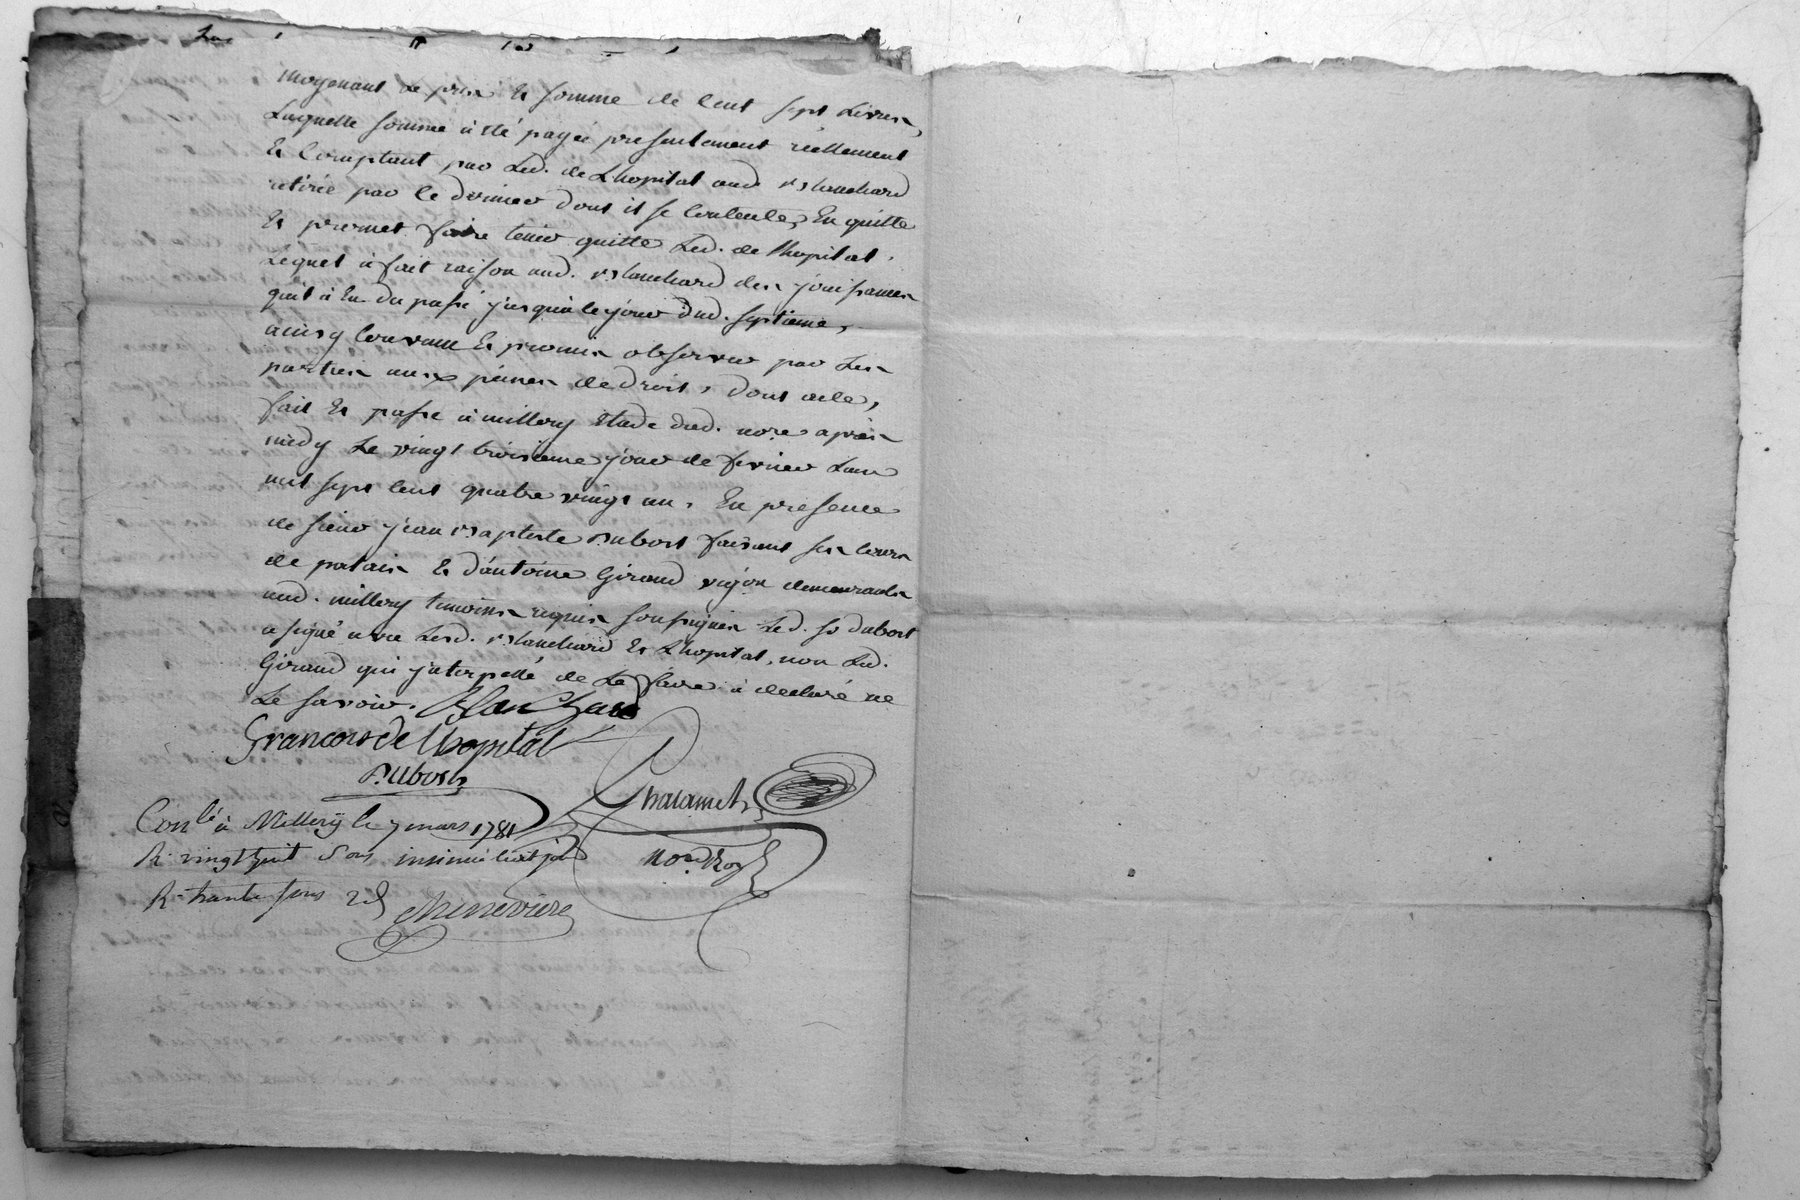 moyenant le prix & somme de cent sept Livres,
Laquelle somme à été payée presentement réellement
& Comptant par Led. de Lhopital aud. Blanchard
retirée par ce dernier dont il se Contente, En quitte
& promet faire tenir quitte Led. de lhopital.
Lequel à fait raison aud. Blanchard des jouissances
quil à Eu du passé jusqua le jour dud. septieme,
ainsy Convenu & promis observer par Les
parties aux peines de droit, dont acte,
fait & passé à millery Etude dud. nore. après
midy Le vingt troisieme jour de fevrier Lan
mil sept cent quatre vingt un. En presence
de sieur jean Baptiste Dubost faisant ses cours
de palais & d'antoine Giraud demeurants
aud. millery temoins requis soussignés Led. sr. dubost
a signé avec Lesd. Blanchard & Lhopital, non Led.
Giraud qui jnterpellé de Le faire à declaré ne
Le savoir. Blanchard
francois de lhopital
Dubost
Chalamel
Conlé. à Millery le 7 mars 1781
R. vingt huit sous insinué led. jour
nore. Roy.
R. trente sous